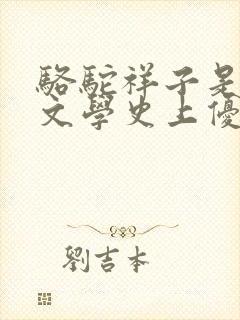 駱駝祥子是
文學史上優
劉吉本